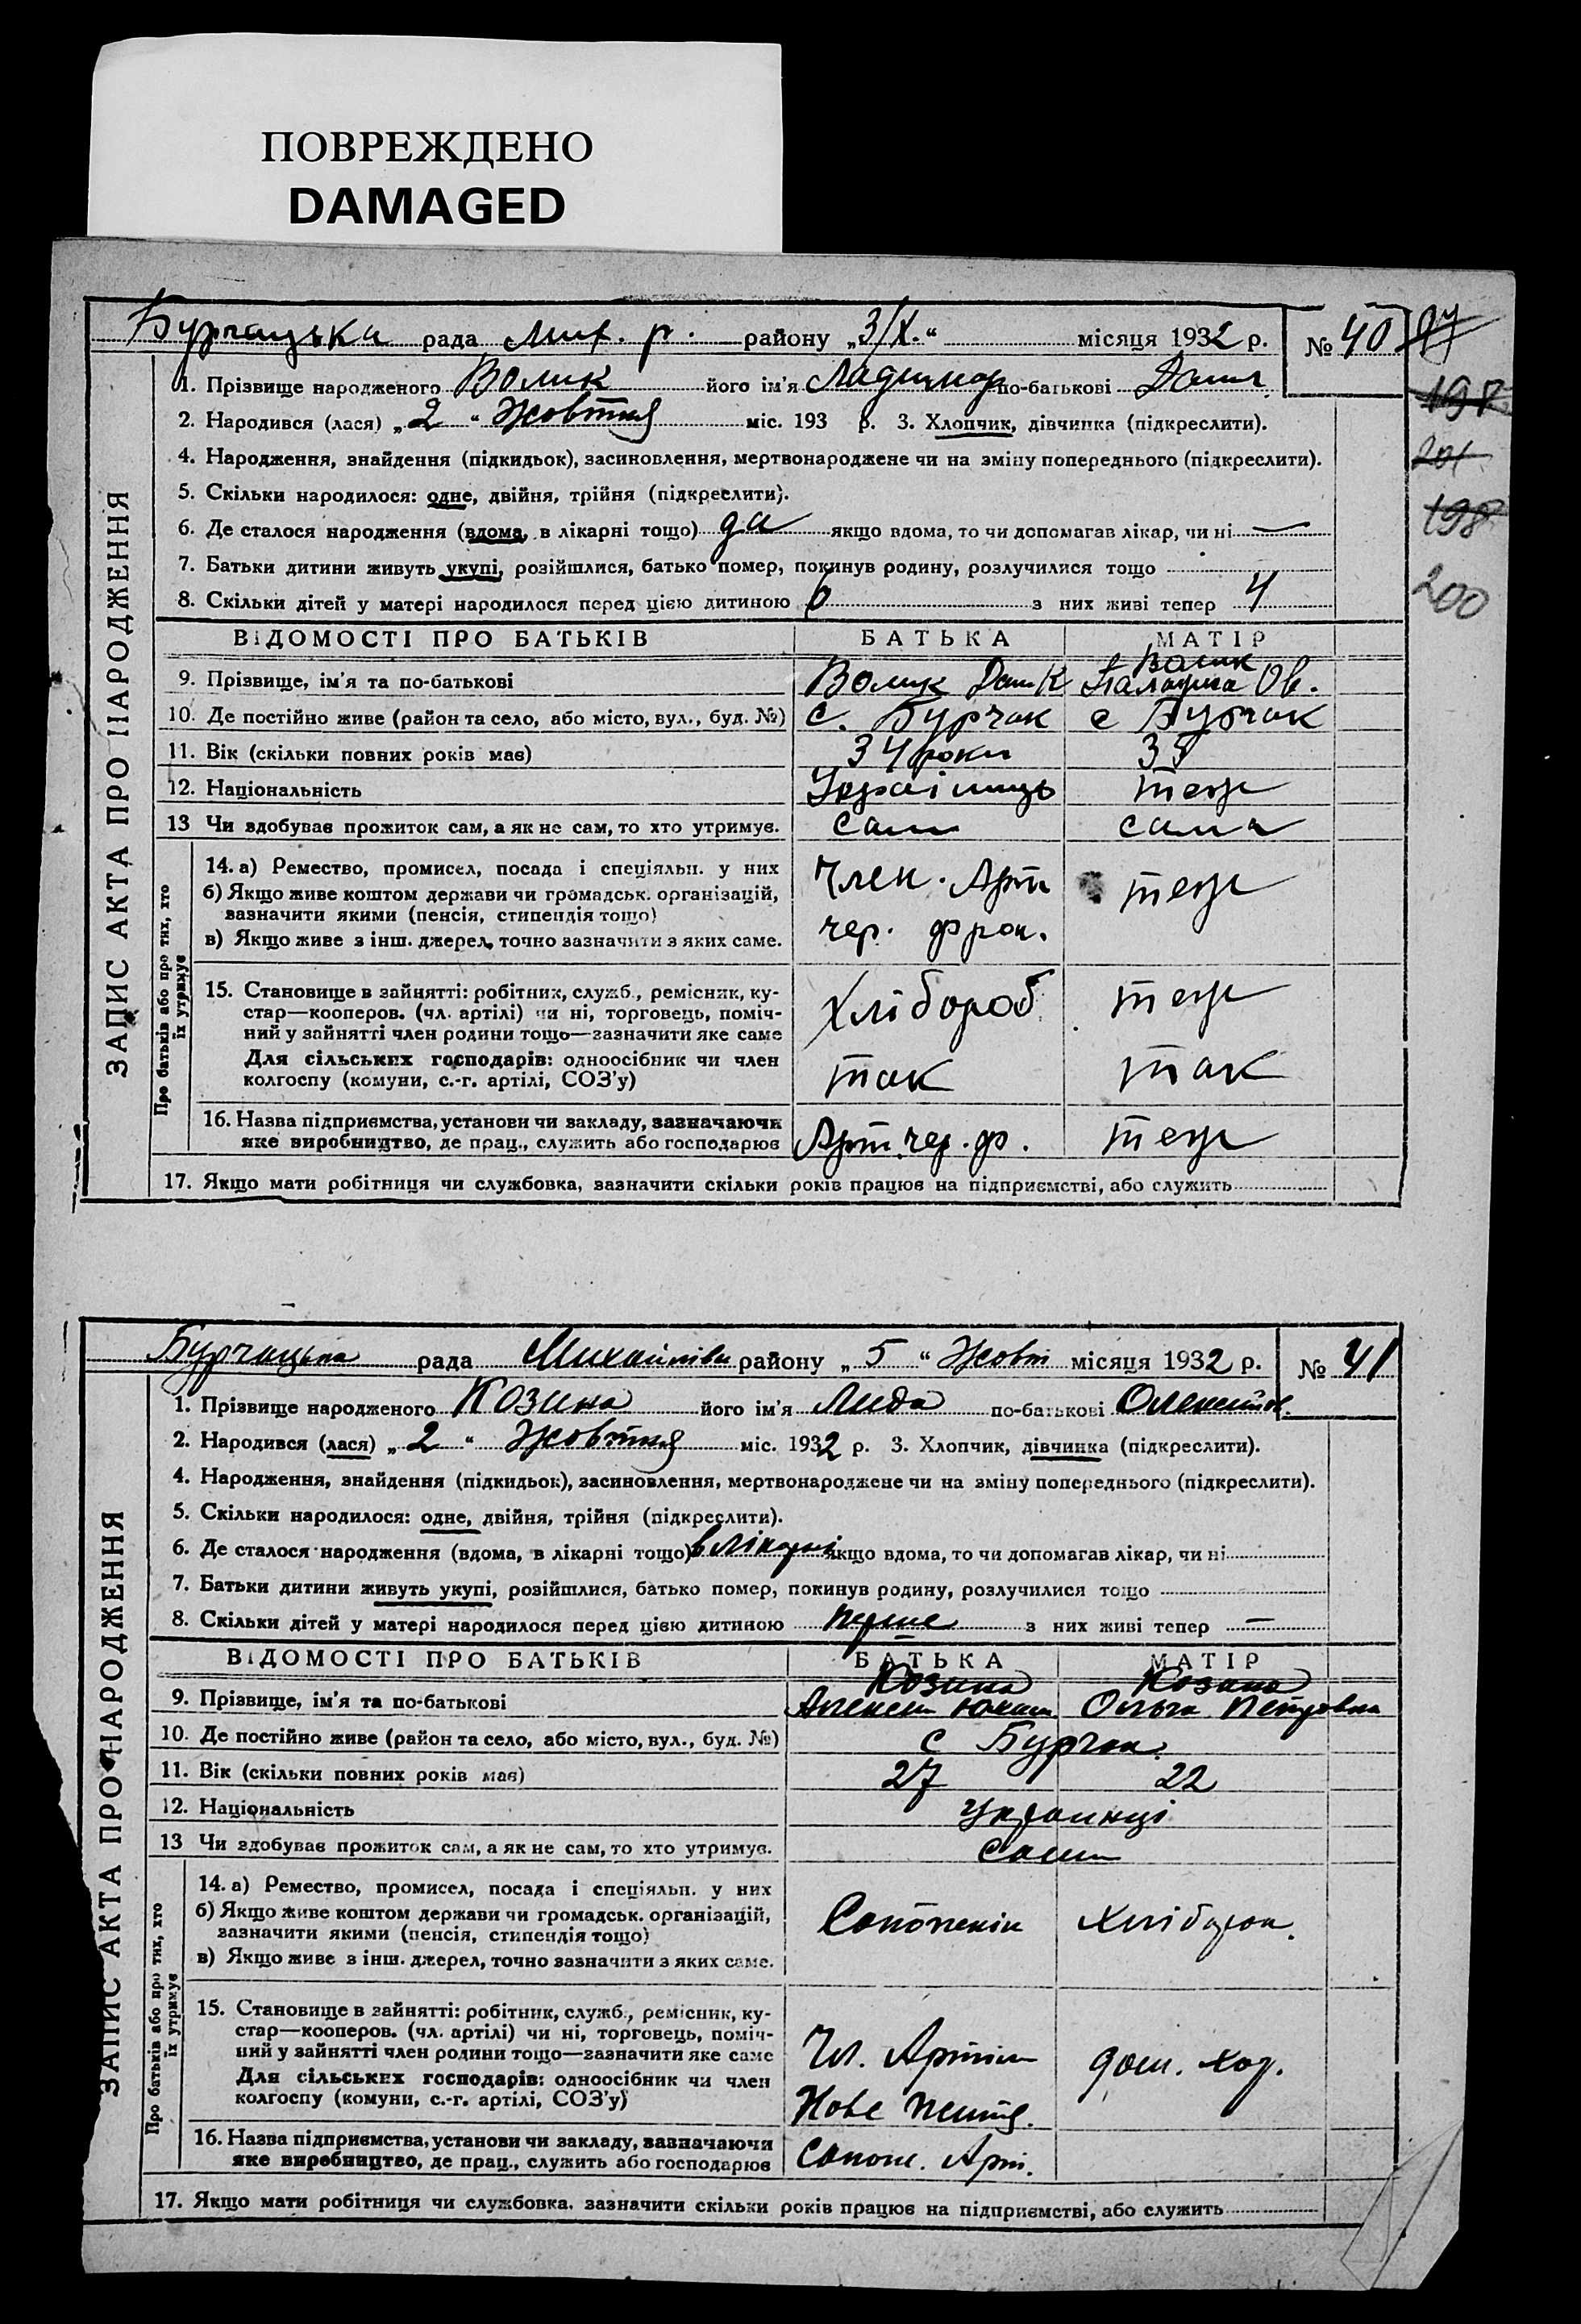 ПОВРЕЖДЕНО
DAMAGED
Бурчацька рада Мих. р. району „3/X.“ місяця 1932 р. № 40
1. Прізвище народженого Волик його ім'я Ладимир по-батькові Данил
197
2. Народився (лася) „2“ Жовтня міс. 193 р. 3. Хлопчик, дівчинка (підкреслити).
201
4. Народження, знайдення (підкидьок), засиновлення, мертвонароджене чи на зміну попереднього (підкреслити).
5. Скільки народилося: одне, двійня, трійня (підкреслити).
198
6. Де сталося народження (вдома, в лікарні тощо) да якщо вдома, то чи допомагав лікар, чи ні —
7. Батьки дитини живуть укупі, розійшлися, батько помер, покинув родину, розлучилися тощо
200
8. Скільки дітей у матері народилося перед цією дитиною 6 з них живі тепер 4
ЗАПИС АКТА ПРО НАРОДЖЕННЯ
ВІДОМОСТІ ПРО БАТЬКІВ БАТЬКА МАТІР
Волик
9. Прізвище, ім'я та по-батькові Волик Дан К Ов.
10. Де постійно живе (район та село, або місто, вул., буд. №) с. Бурчак с Бурчак
11. Вік (скільки повних років має) 34 роки 35
12. Національність Українець теж
13 Чи здобуває прожиток сам, а як не сам, то хто утримує. сам сама
Про батьків або про тих, хто їх утримує
14. а) Ремество, промисел, посада і спеціяльн. у них
б) Якщо живе коштом держави чи громадськ. організацій,
зазначити якими (пенсія, стипендія тощо)
в) Якщо живе з інш. джерел, точно зазначити з яких саме.
Член. Арт теж
чер. фрон.
15. Становище в зайнятті: робітник, служб., ремісник, ку-
стар—кооперов. (чл. артілі) чи ні, торговець, поміч-
ний у зайнятті член родини тощо—зазначити яке саме
Для сільських господарів: одноосібник чи член
колгоспу (комуни, с.-г. артілі, СОЗ'у)
Хлібороб теж
так так
16. Назва підприємства, установи чи закладу, зазначаючи
яке виробництво, де прац., служить або господарює Арт. чер. ф. теж
17. Якщо мати робітниця чи службовка, зазначити скільки років працює на підприємстві, або служить
Бурчацька рада Михайлівн району „5“ Жовт місяця 1932 р. № 41
1. Прізвище народженого Козина його ім'я Лида по-батькові Олексійов.
2. Народився (лася) „2“ Жовтня міс. 1932 р. 3. Хлопчик, дівчинка (підкреслити).
4. Народження, знайдення (підкидьок), засиновлення, мертвонароджене чи на зміну попереднього (підкреслити).
5. Скільки народилося: одне, двійня, трійня (підкреслити).
6. Де сталося народження (вдома, в лікарні тощо) в лікарні якщо вдома, то чи допомагав лікар, чи ні
7. Батьки дитини живуть укупі, розійшлися, батько помер, покинув родину, розлучилися тощо
8. Скільки дітей у матері народилося перед цією дитиною перше з них живі тепер —
ЗАПИС АКТА ПРО НАРОДЖЕННЯ
ВІДОМОСТІ ПРО БАТЬКІВ БАТЬКА МАТІР
Козина Козина
9. Прізвище, ім'я та по-батькові Алексій Ольга Петровна
10. Де постійно живе (район та село, або місто, вул., буд. №) с Бурчак.
11. Вік (скільки повних років має) 27 22
12. Національність Украинці
13 Чи здобуває прожиток сам, а як не сам, то хто утримує. Сами
Про батьків або про тих, хто їх утримує
14. а) Ремество, промисел, посада і спеціяльн. у них
б) Якщо живе коштом держави чи громадськ. організацій,
зазначити якими (пенсія, стипендія тощо)
в) Якщо живе з інш. джерел, точно зазначити з яких саме.
15. Становище в зайнятті: робітник, служб., ремісник, ку-
стар—кооперов. (чл. артілі) чи ні, торговець, поміч-
ний у зайнятті член родини тощо—зазначити яке саме
Для сільських господарів: одноосібник чи член
колгоспу (комуни, с.-г. артілі, СОЗ'у)
Чл. Артіли дом. хоз.
Нове
16. Назва підприємства, установи чи закладу, зазначаючи
яке виробництво, де прац., служить або господарює Сапож. Арт.
17. Якщо мати робітниця чи службовка, зазначити скільки років працює на підприємстві, або служить